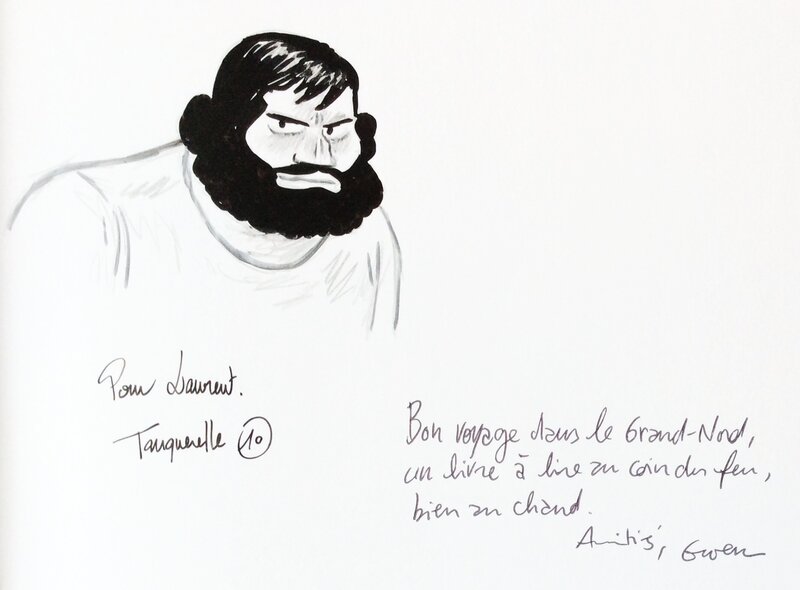 Pour Laurent.
Tanquerelle 10
Bon voyage dans le Grand-Nord,
un livre à lire au coin du feu,
bien au chaud.
Amitiés, Gwen